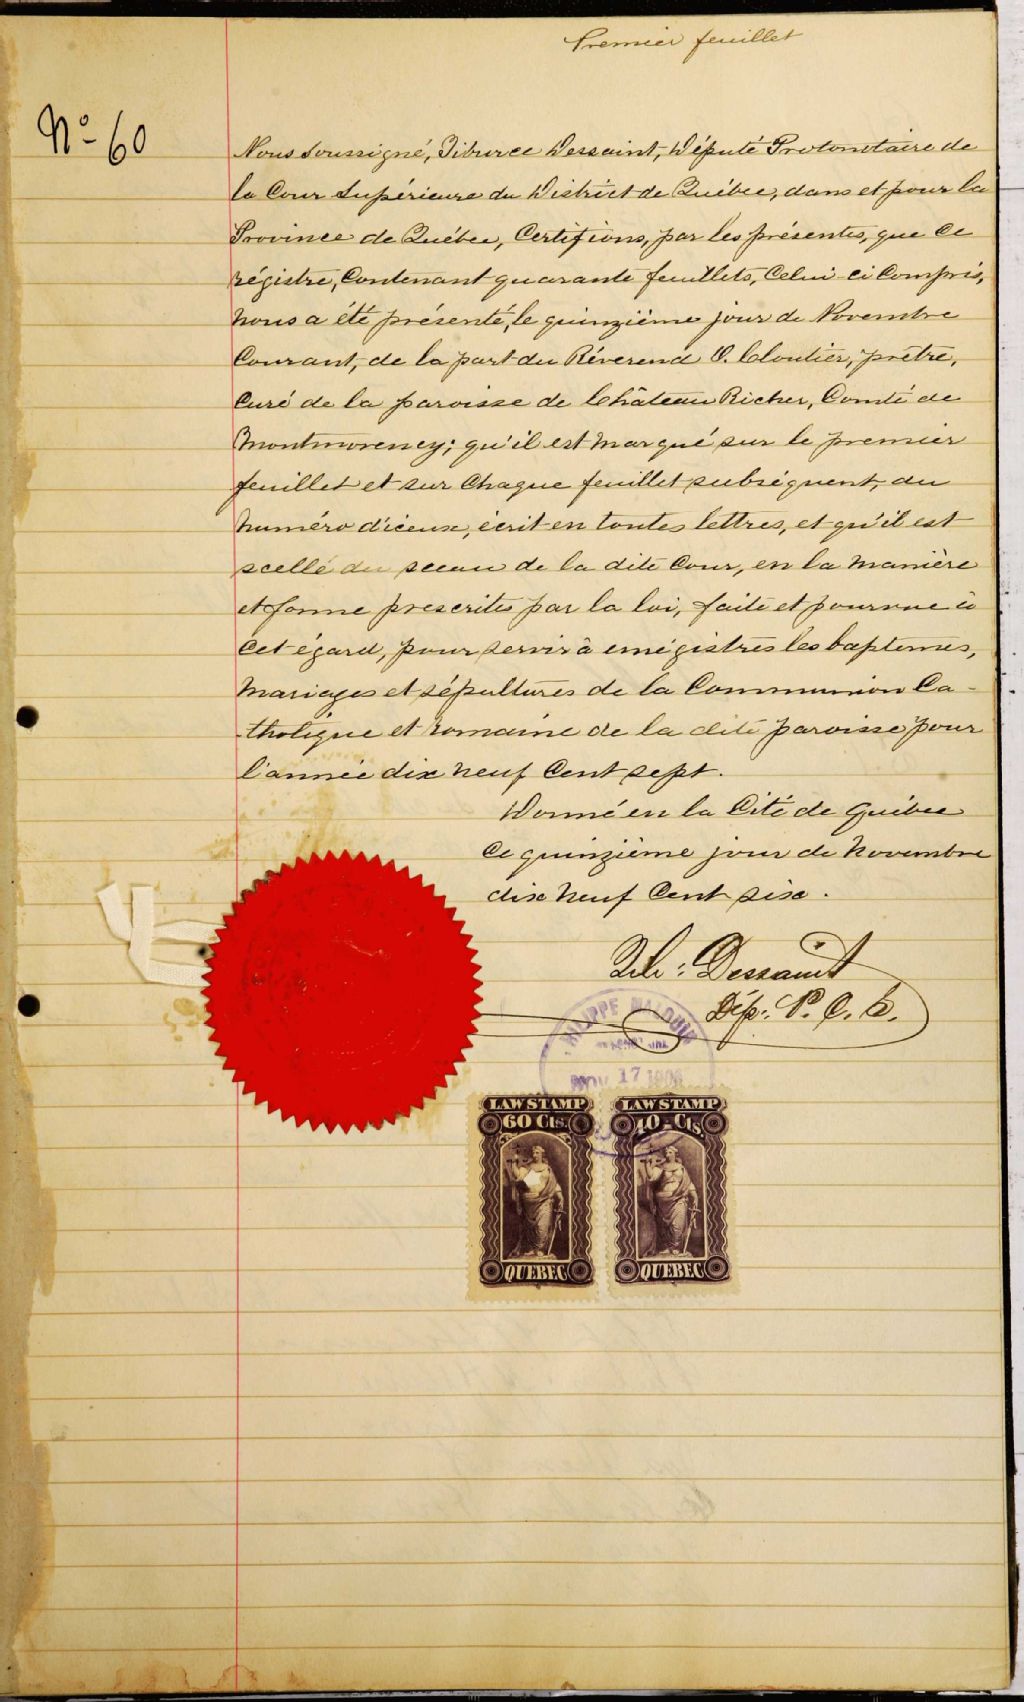 Premier feuillet
No 60
Nous soussigné, Tiburce Dessaint, Député Protonotaire de
la Cour Supérieure du District de Québec, dans et pour la
Province de Québec, Certifions, par les présentes, que ce
régistre, contenant quarante feuillets, celui-ci compris,
nous a été présenté, le quinzième jour de Novembre
courant, de la part du Réverend O. Cloutier, prêtre,
curé de la paroisse de Château Richer, Comté de
Montmorency; qu'il est marqué sur le premier
feuillet et sur chaque feuillet subséquent, du
numéro d'iceux, écrit en toutes lettres, et qu'il est
scellé du sceau de la dite Cour, en la manière
et forme prescrites par la loi, faite et pourvue à
cet égard, pour servir à enrégistres les baptemes,
mariages et sépultures de la Communion Ca-
tholique et romaine de la dite paroisse pour
l'année dix neuf cent sept.
Donné en la Cité de Québec
Ce quinzième jour de novembre
dix neuf cent six.
Tib: Dessaint
Dép: P. C. S.
PHILIPPE MALOUIN
NOV 17 1906
LAW STAMP
60 Cts.
QUEBEC
LAW STAMP
40 Cts.
QUEBEC